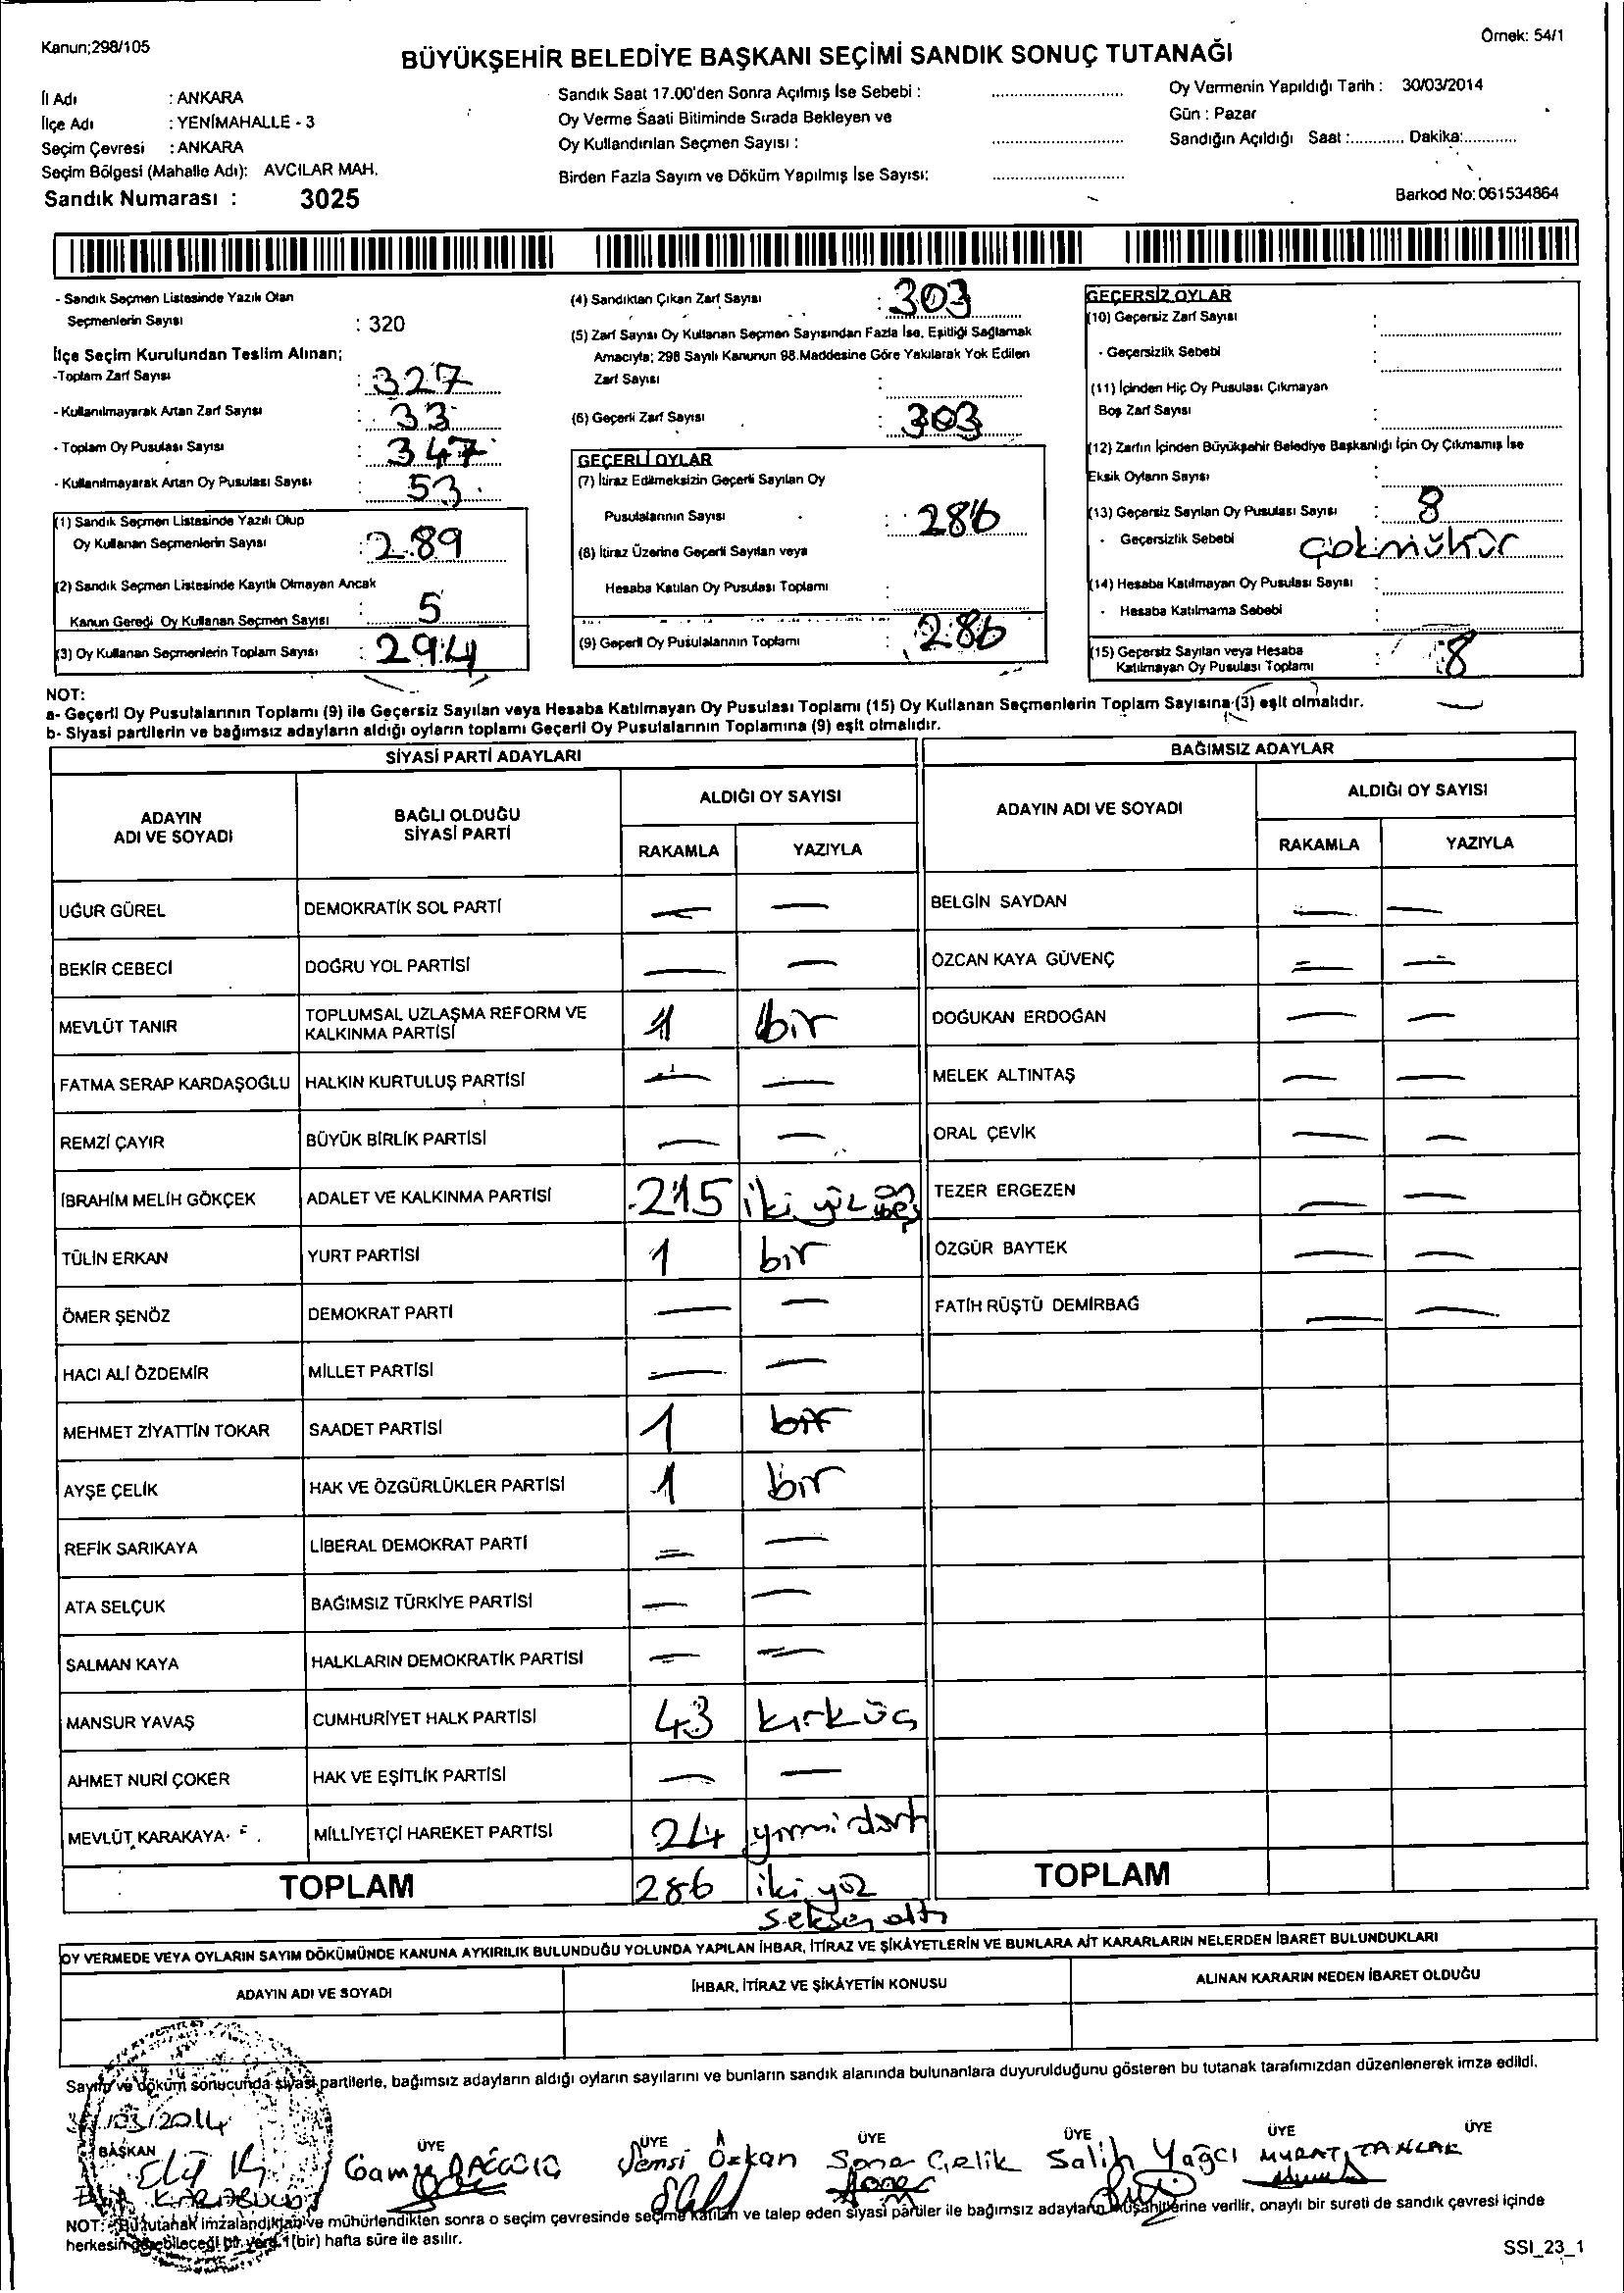 Kanun;298/105
Örnek: 54/1
BÜYÜKŞEHİR BELEDİYE BAŞKANI SEÇİMİ SANDIK SONUÇ TUTANAĞI
İl Adı : ANKARA
İlçe Adı : YENİMAHALLE - 3
Seçim Çevresi : ANKARA
Seçim Bölgesi (Mahalle Adı): AVCILAR MAH.
Sandık Numarası : 3025
Sandık Saat 17.00'den Sonra Açılmış İse Sebebi :
Oy Verme Saati Bitiminde Sırada Bekleyen ve
Oy Kullandırılan Seçmen Sayısı :
Birden Fazla Sayım ve Döküm Yapılmış İse Sayısı:
Oy Vermenin Yapıldığı Tarih : 30/03/2014
Gün : Pazar
Sandığın Açıldığı Saat :............ Dakika:............
Barkod No: 061534864
- Sandık Seçmen Listesinde Yazılı Olan
Seçmenlerin Sayısı : 320
İlçe Seçim Kurulundan Teslim Alınan;
-Toplam Zarf Sayısı : 327
- Kullanılmayarak Artan Zarf Sayısı : 33
- Toplam Oy Pusulası Sayısı : 347
- Kullanılmayarak Artan Oy Pusulası Sayısı : 53
(1) Sandık Seçmen Listesinde Yazılı Olup
Oy Kullanan Seçmenlerin Sayısı : 289
(2) Sandık Seçmen Listesinde Kayıtlı Olmayan Ancak
Kanun Gereği Oy Kullanan Seçmen Sayısı : 5
(3) Oy Kullanan Seçmenlerin Toplam Sayısı : 294
(4) Sandıktan Çıkan Zarf Sayısı : 303
(5) Zarf Sayısı Oy Kullanan Seçmen Sayısından Fazla İse, Eşitliği Sağlamak
Amacıyla; 298 Sayılı Kanunun 98.Maddesine Göre Yakılarak Yok Edilen
Zarf Sayısı :
(6) Geçerli Zarf Sayısı : 303
GEÇERLİ OYLAR
(7) İtiraz Edilmeksizin Geçerli Sayılan Oy
Pusulalarının Sayısı : 286
(8) İtiraz Üzerine Geçerli Sayılan veya
Hesaba Katılan Oy Pusulası Toplamı :
(9) Geçerli Oy Pusulalarının Toplamı : 286
GEÇERSİZ OYLAR
(10) Geçersiz Zarf Sayısı :
- Geçersizlik Sebebi :
(11) İçinden Hiç Oy Pusulası Çıkmayan
Boş Zarf Sayısı :
(12) Zarfın İçinden Büyükşehir Belediye Başkanlığı İçin Oy Çıkmamış İse
Eksik Oyların Sayısı :
(13) Geçersiz Sayılan Oy Pusulası Sayısı : 8
- Geçersizlik Sebebi çok mühür
(14) Hesaba Katılmayan Oy Pusulası Sayısı :
- Hesaba Katılmama Sebebi :
(15) Geçersiz Sayılan veya Hesaba
Katılmayan Oy Pusulası Toplamı : 8
NOT:
a- Geçerli Oy Pusulalarının Toplamı (9) ile Geçersiz Sayılan veya Hesaba Katılmayan Oy Pusulası Toplamı (15) Oy Kullanan Seçmenlerin Toplam Sayısına (3) eşit olmalıdır.
b- Siyasi partilerin ve bağımsız adayların aldığı oyların toplamı Geçerli Oy Pusulalarının Toplamına (9) eşit olmalıdır.
SİYASİ PARTİ ADAYLARI
BAĞIMSIZ ADAYLAR
ADAYIN ADI VE SOYADI
BAĞLI OLDUĞU SİYASİ PARTİ
ALDIĞI OY SAYISI
RAKAMLA YAZIYLA
ADAYIN ADI VE SOYADI
ALDIĞI OY SAYISI
RAKAMLA YAZIYLA
UĞUR GÜREL DEMOKRATİK SOL PARTİ — — BELGİN SAYDAN — —
BEKİR CEBECİ DOĞRU YOL PARTİSİ — — ÖZCAN KAYA GÜVENÇ — —
MEVLÜT TANIR TOPLUMSAL UZLAŞMA REFORM VE KALKINMA PARTİSİ 1 bir DOĞUKAN ERDOĞAN — —
FATMA SERAP KARDAŞOĞLU HALKIN KURTULUŞ PARTİSİ — — MELEK ALTINTAŞ — —
REMZİ ÇAYIR BÜYÜK BİRLİK PARTİSİ — — ORAL ÇEVİK — —
İBRAHİM MELİH GÖKÇEK ADALET VE KALKINMA PARTİSİ 215 iki yüz on beş TEZER ERGEZEN — —
TÜLİN ERKAN YURT PARTİSİ 1 bir ÖZGÜR BAYTEK — —
ÖMER ŞENÖZ DEMOKRAT PARTİ — — FATİH RÜŞTÜ DEMİRBAĞ — —
HACI ALİ ÖZDEMİR MİLLET PARTİSİ — —
MEHMET ZİYATTİN TOKAR SAADET PARTİSİ 1 bir
AYŞE ÇELİK HAK VE ÖZGÜRLÜKLER PARTİSİ 1 bir
REFİK SARIKAYA LİBERAL DEMOKRAT PARTİ — —
ATA SELÇUK BAĞIMSIZ TÜRKİYE PARTİSİ — —
SALMAN KAYA HALKLARIN DEMOKRATİK PARTİSİ — —
MANSUR YAVAŞ CUMHURİYET HALK PARTİSİ 43 kırküç
AHMET NURİ ÇOKER HAK VE EŞİTLİK PARTİSİ — —
MEVLÜT KARAKAYA MİLLİYETÇİ HAREKET PARTİSİ 24 yirmi dört
TOPLAM 286 iki yüz seksen altı TOPLAM
OY VERMEDE VEYA OYLARIN SAYIM DÖKÜMÜNDE KANUNA AYKIRILIK BULUNDUĞU YOLUNDA YAPILAN İHBAR, İTİRAZ VE ŞİKÂYETLERİN VE BUNLARA AİT KARARLARIN NELERDEN İBARET BULUNDUKLARI
ADAYIN ADI VE SOYADI İHBAR, İTİRAZ VE ŞİKÂYETİN KONUSU ALINAN KARARIN NEDEN İBARET OLDUĞU
Sayım ve döküm sonucunda siyasi partilerle, bağımsız adayların aldığı oyların sayılarını ve bunların sandık alanında bulunanlara duyurulduğunu gösteren bu tutanak tarafımızdan düzenlenerek imza edildi.
/03/2014
BAŞKAN ÜYE ÜYE ÜYE ÜYE ÜYE ÜYE
Elif KARABULUT Gamze Şemsi Özkan Sona Çelik Salih Yağcı MURAT TANLAK
NOT: Bu tutanak imzalandıktan ve mühürlendikten sonra o seçim çevresinde seçime katılan ve talep eden siyasi partiler ile bağımsız adayların müşahitlerine verilir, onaylı bir sureti de sandık çevresi içinde
herkesin görebileceği bir yere 1(bir) hafta süre ile asılır.
SSI_23_1